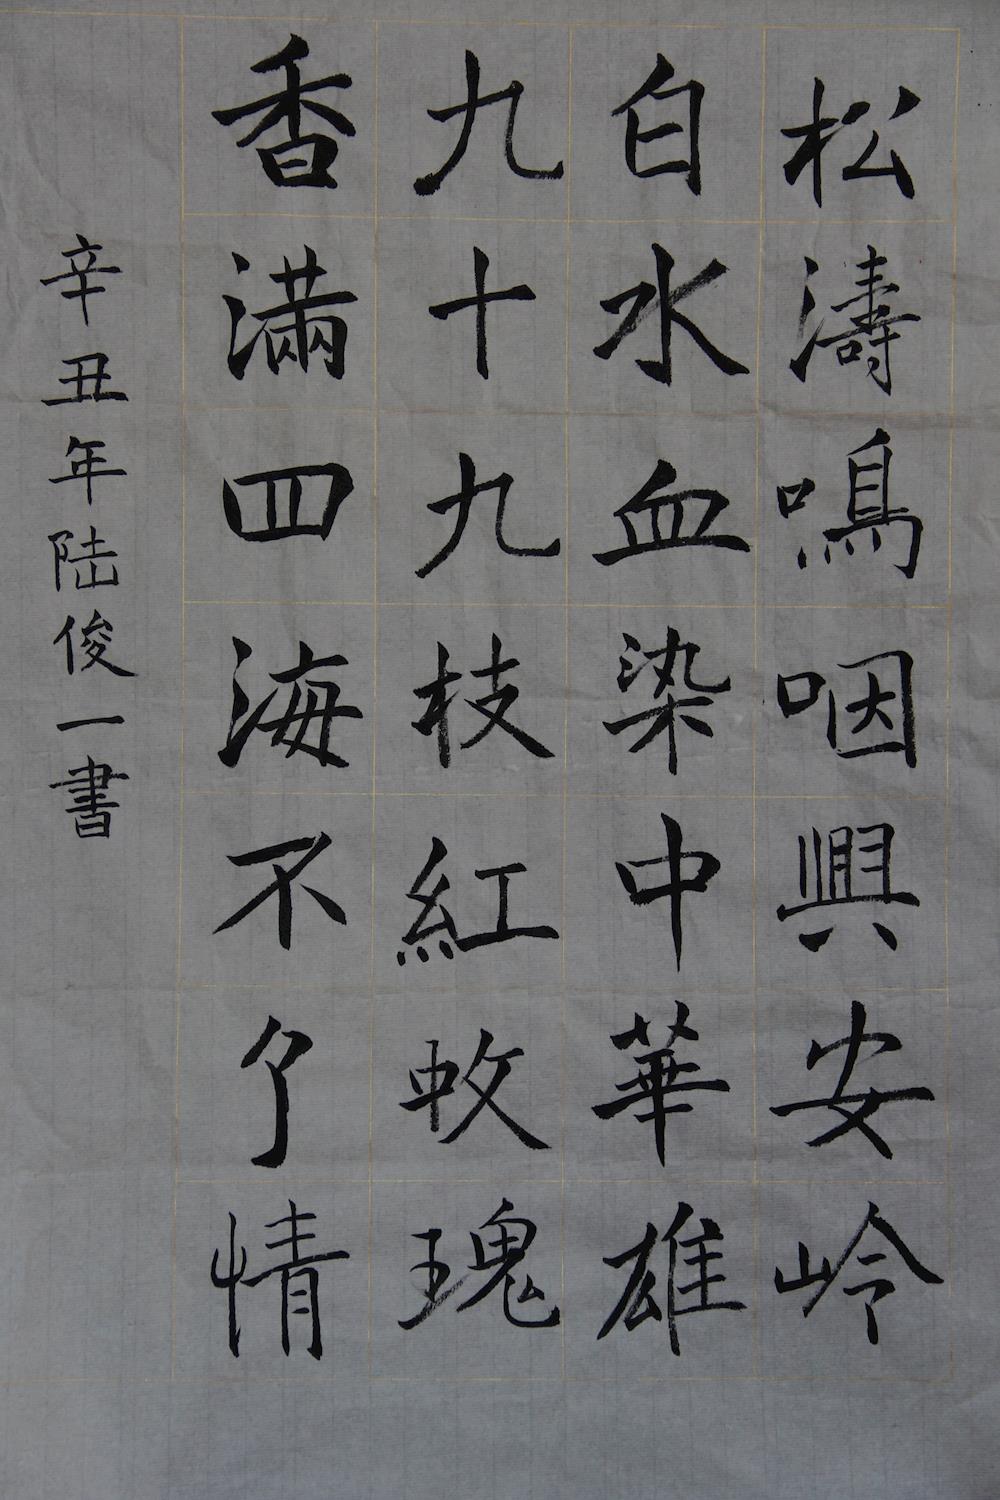 松濤鳴咽興安岭
白水血染中華雄
九十九枝紅玫瑰
香滿四海不了情
辛丑年陆俊一書